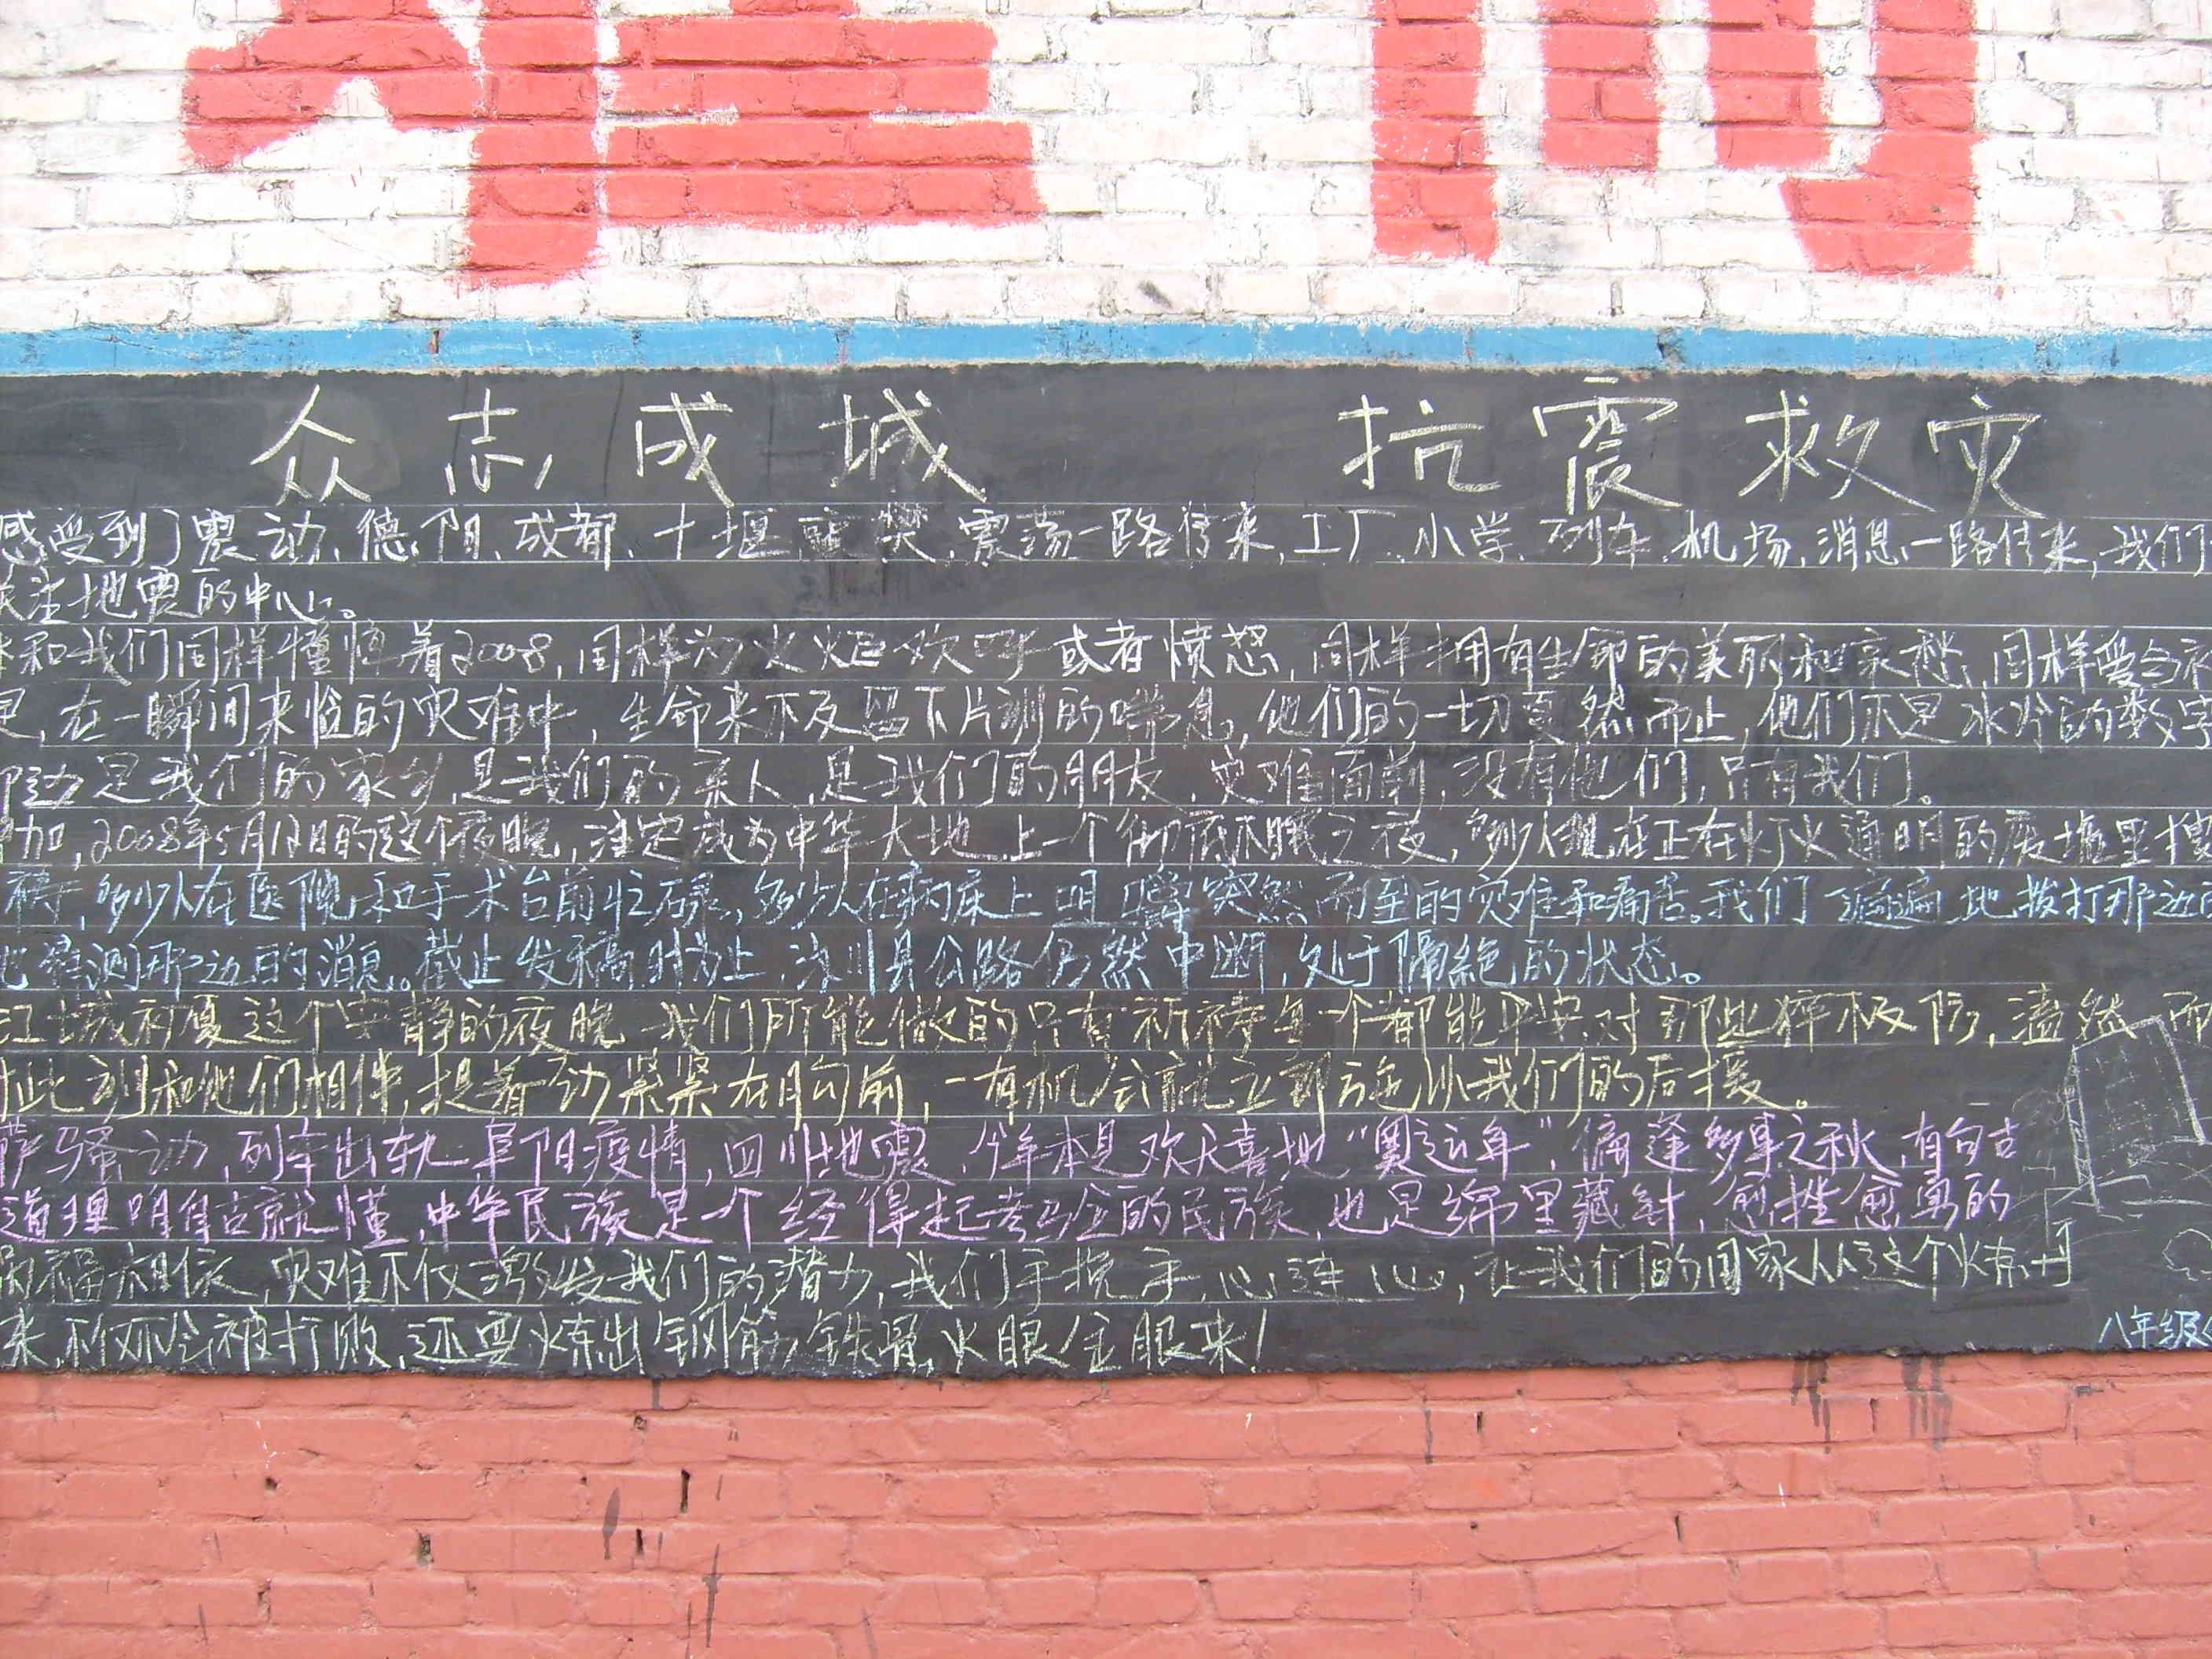 众志成城 抗震救灾
感受到了震动,德阳,成都,十堰,襄樊,震荡一路传来,工厂,小学,列车,机场,消息一路传来,我们
关注地震的中心。
和我们同样憧憬着2008,同样为火炬欢呼或者愤怒,同样拥有生命的美丽和哀愁,同样受
是,在一瞬间来临的灾难中,生命来不及留下片训的喘息,他们的一切戛然而止,他们不是冰冷的数字
那边是我们的家乡,是我们的亲人,是我们的朋友,灾难面前,没有他们,只有我们。
加,2008年5月12日的这个夜晚,注定成为中华大地上一个彻底不眠之夜,多少人现在正在灯火通明的废墟里搜
祷,多少人在医院和手术台前忙碌,多少人在病床上咀嚼突然而至的灾难和痛苦。我们一遍遍地拨打那边
测那边的消息。截止发稿时为止,汶川县公路仍然中断,处于隔绝的状态。
江城初夏这个安静的夜晚 我们所能做的只有祈祷每一个都能平安.对那些猝不及防,溘然而
此刻和他们相伴,提着劲紧紧在胸前,一有机会就立即施以我们的后援。
萨骚动,列车出轨,阜阳疫情,四川地震,今年本是欢天喜地“奥运年”,偏逢多事之秋,有句古
道理咱自古就懂,中华民族是一个经得起考验的民族,也是绵里藏针,愈挫愈勇的
祸福相依,灾难不仅激发我们的潜力,我们手挽手,心连心,让我们的国家从这个火
来,不仅不会被打败,还要炼出钢筋铁骨,火眼金眼来!
八年级